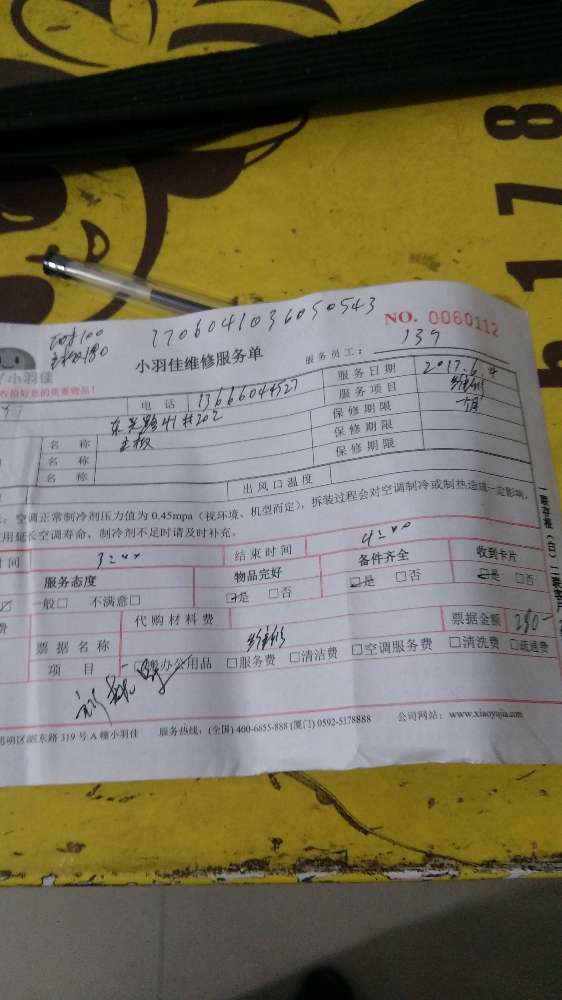 178
1706041036050543
NO. 0060112
小羽佳
小羽佳维修服务单
服务员工: 139
电话 13666044527
服务日期 2017.6.4
服务项目 维修
名称 主板
保修期限
名称
保修期限
名称
保修期限
出风口温度
空调正常制冷剂压力值为 0.45mpa (视环境、机型而定), 拆装过程会对空调制冷或制热造成一定影响,
用延长空调寿命, 制冷剂不足时请及时补充。
时间 3:00
结束时间 4:00
服务态度
物品完好
备件齐全
收到卡片
一般□ 不满意□
□是 □否
□是 □否
□是 □否
费
代购材料费
票据名称 维修
票据金额 280-
项目
办公用品 □服务费 □清洁费 □空调服务费 □清洗费 □疏通费
东路 319 号 A 幢小羽佳
服务热线: (全国) 400-6855-888 (厦门) 0592-5178888
公司网站: www.xiaoyujia.com